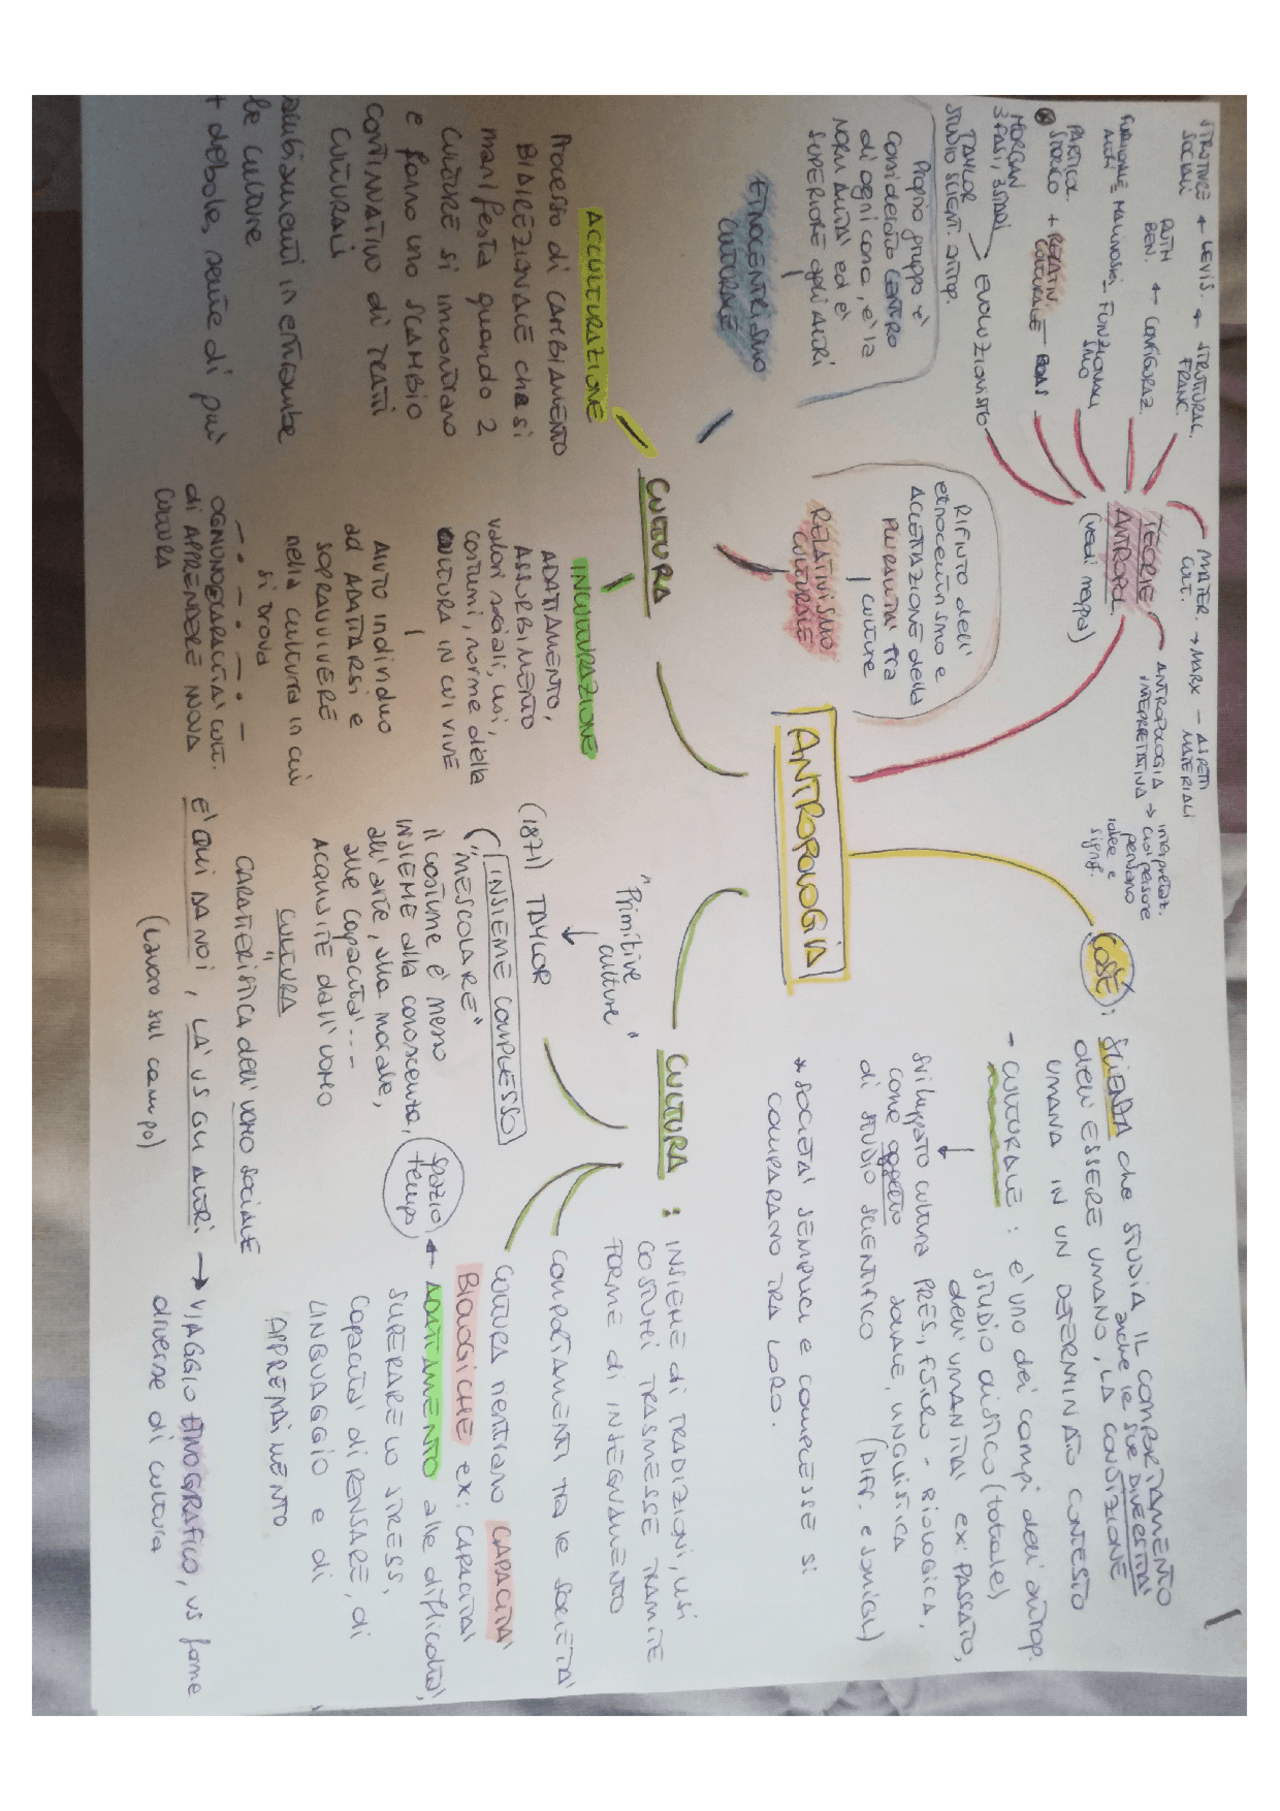 ANTROPOLOGIA
COS'È:
SCIENZA che STUDIA IL COMPORTAMENTO
anche le sue DIVERSITA'
dell'ESSERE UMANO, LA CONDIZIONE
UMANA IN UN DETERMINATO CONTESTO
- CULTURALE: e' uno dei campi dell'antrop.
STUDIO olistico (totale)
dell'UMANITA' ex: PASSATO,
PRES., futuro - BIOLOGICA,
SOCIALE, LINGUISTICA
(DIFF. e SOMIGL)
sviluppato cultura
come oggetto
di STUDIO SCIENTIFICO
* SOCIETA' SEMPLICI E COMPLESSE SI
COMPARANO TRA LORO.
TEORIE
ANTROPOL.
(vedi mappa)
MATER. → MARX - ASPETTI
CULT. MATERIALI
ANTROPOLOGIA → interpretaz.
INTERPRETATIVA
cui persone
pensano
idee e
signif.
STRUTTURE ← LEVIS. ← STRUTTURAL.
SOCIALI FRANC.
RUTH
BEN. ← CONFIGURAZ.
MALINOSKI - FUNZIONALI
SMO
PARTICOL.
STORICO + RELATIV. - BOAS
CULTURALE
MORGAN
3 FASI, 3 STADI
TAYLOR
STUDIO SCIENT. antrop.
EVOLUZIONISTO
Proprio gruppo e'
considerato CENTRO
di ogni cosa, e' la
NORMALITA' ed e'
SUPERIORE agli ALTRI
ETNOCENTRISMO
CULTURALE
RIFIUTO dell'
etnocentrismo e
ACCETTAZIONE della
PLURALITA' tra
culture
RELATIVISMO
CULTURALE
CULTURA
ACCULTURAZIONE
Processo di CAMBIAMENTO
BIDIREZIONALE che si
manifesta quando 2
CULTURE si incontrano
e fanno uno SCAMBIO
CONTINUATIVO di TRATTI
CULTURALI
cambiamenti in entrambe
le culture
+ debole, sente di più
INCULTURAZIONE
ADATTAMENTO,
ASSORBIMENTO
valori sociali, usi,
costumi, norme della
CULTURA IN CUI VIVE
AIUTO individuo
ad ADATTARSI e
SOPRAVVIVERE
nella cultura in cui
si trova
OGNUNO CAPACITA' CULT.
di APPRENDERE NUOVA
CULTURA
CULTURA: INSIEME di TRADIZIONI, USI
COSTUMI TRASMESSE TRAMITE
FORME di INSEGNAMENTO
"Primitive
culture"
(1871) TAYLOR
INSIEME COMPLESSO
("MESCOLARE"
il costume e' messo
INSIEME alla conoscenza,
all'arte, alla morale,
alle capacita'...
ACQUISITE dall'UOMO
COMPORTAMENTI TRA le SOCIETA'
CULTURA rientrano CAPACITA'
BIOLOGICHE ex: CAPACITA'
spazio
tempo
← ADATTAMENTO alle difficolta',
SUPERARE LO STRESS,
CAPACITA' di PENSARE, di
LINGUAGGIO e di
APPRENDIMENTO
CULTURA
"
CARATTERISTICA dell'UOMO SOCIALE
E' QUI DA NOI, LA' VS GLI ALTRI → VIAGGIO ETNOGRAFICO, vs forme
diverse di cultura
(Lavoro sul campo)